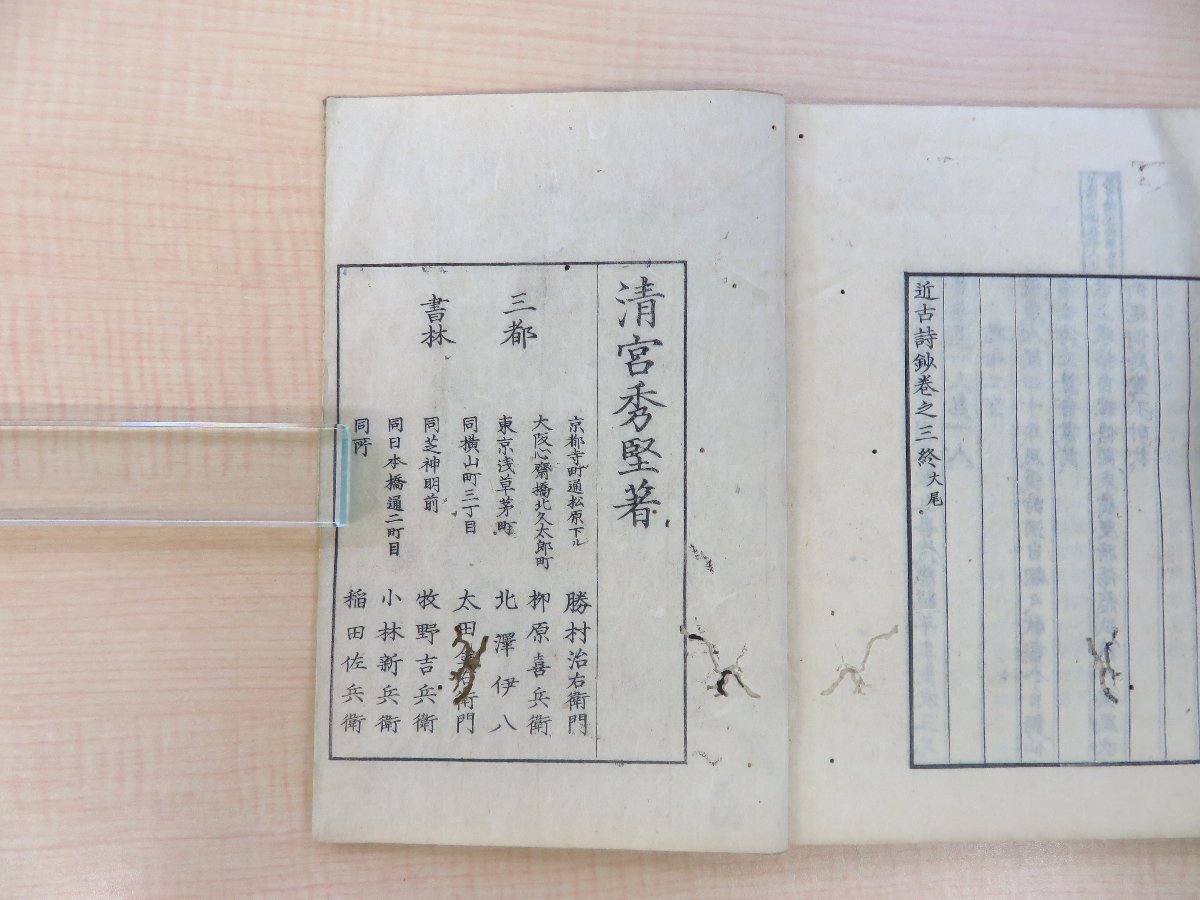 近古詩鈔巻之三終大尾
清宮秀堅著
三都
書林
京都寺町通松原下ル 勝村治右衛門
大阪心齋橋北久太郎町 栁原喜兵衛
東京浅草茅町 北澤伊八
同横山町三丁目 太田金右衛門
同芝神明前 牧野吉兵衛
同日本橋通二町目 小林新兵衛
同所 稲田佐兵衛